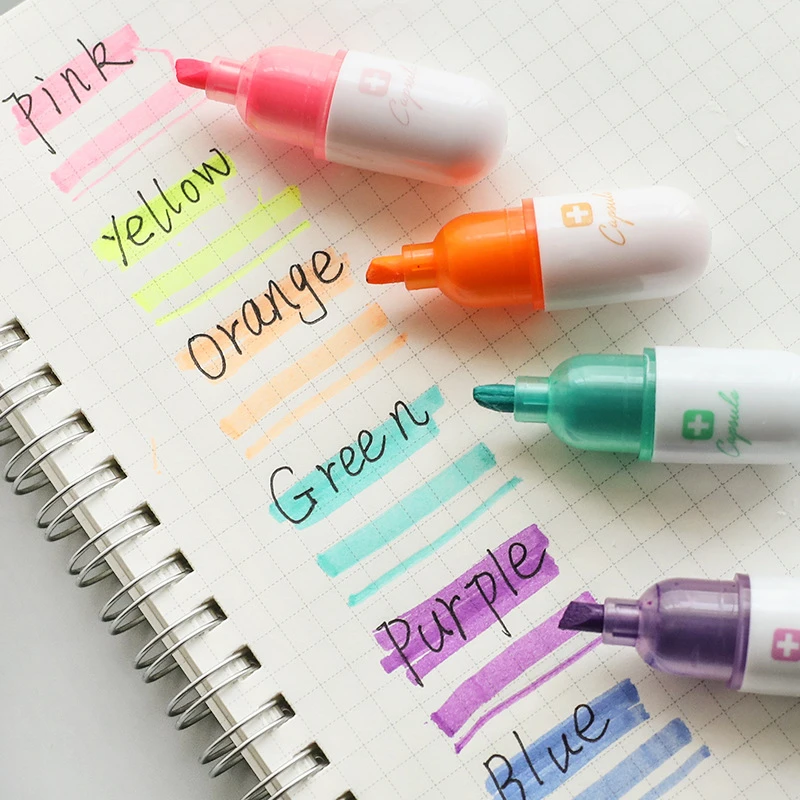 Pink
Capsule
Yellow
Capsule
Orange
Green
Capsule
Purple
Blue